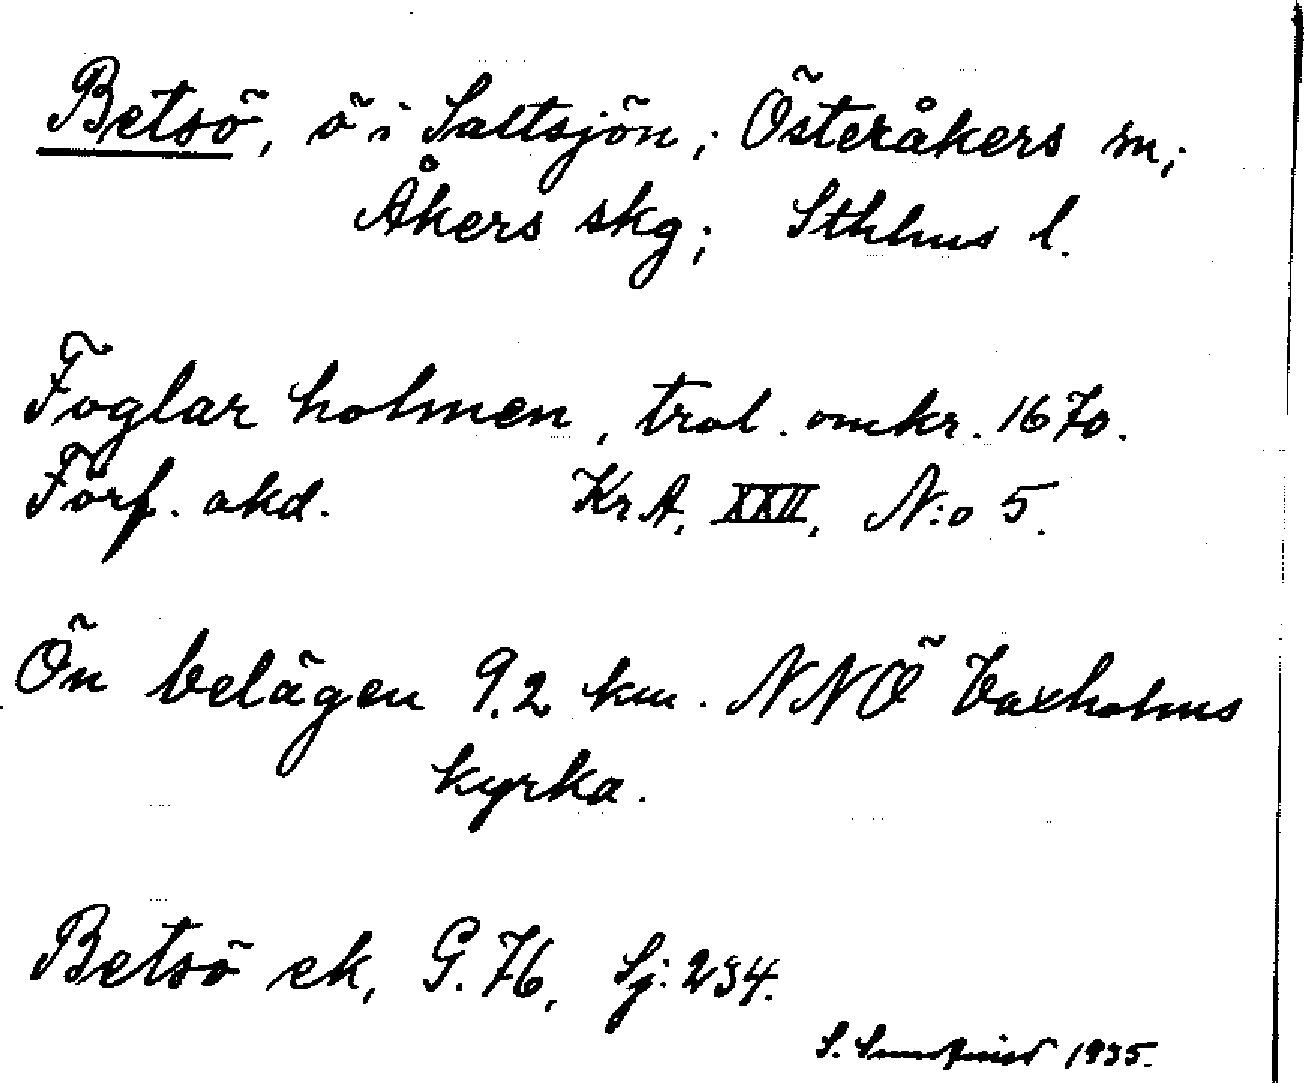 Betsö, ö i Saltsjön; Österåkers sn;
Åkers skg; Sthlms l.
Foglar holmen, trol. omkr. 1670.
Förf. okd. Kr A. XXII. N:o 5.
Ön belägen 9.2 km. NNÖ Vaxholms
kyrka.
Betsö ek, G. 76, Sj: 234.
S. 1935.